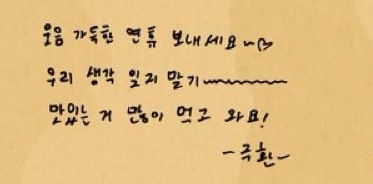 웃음 가득한 연휴 보내세요~♡
우리 생각 잊지 말기~~~~~
맛있는 거 많이 먹고 와요!
-극한-